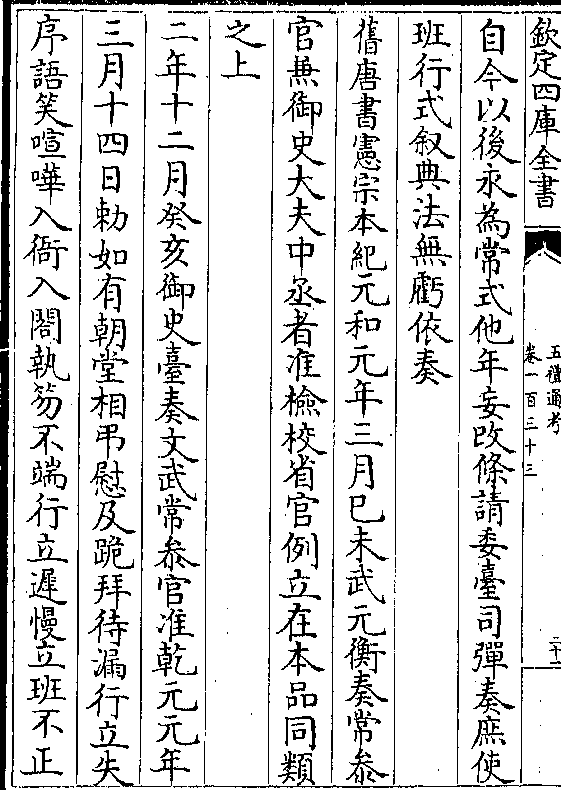 欽定四庫全書
五禮通考
卷一百三十三
二十二
自今以後永為常式他年妄改條請委臺司彈奏庶使
班行式叙典法無虧依奏
舊唐書憲宗本紀元和元年三月己未武元衡奏常叅
官兼御史大夫中丞者准檢校省官例立在本品同類
之上
二年十二月癸亥御史臺奏文武常叅官准乾元元年
三月十四日勅如有朝堂相弔慰及跪拜待漏行立失
序語笑喧嘩入衙入閤執笏不端行立遲慢立班不正